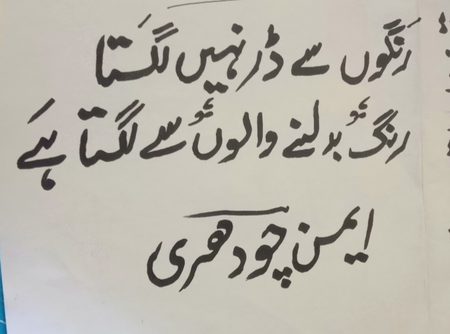 رنگوں سے ڈر نہیں لگتا
رنگ بدلنے والوں سے لگتا ہے
ایمن چودھری